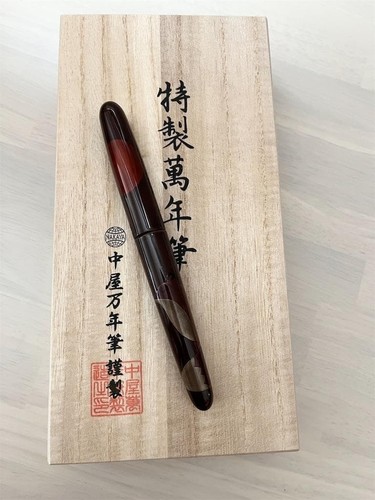 特製萬年筆
NAKAYA
中屋万年筆謹製
中屋萬